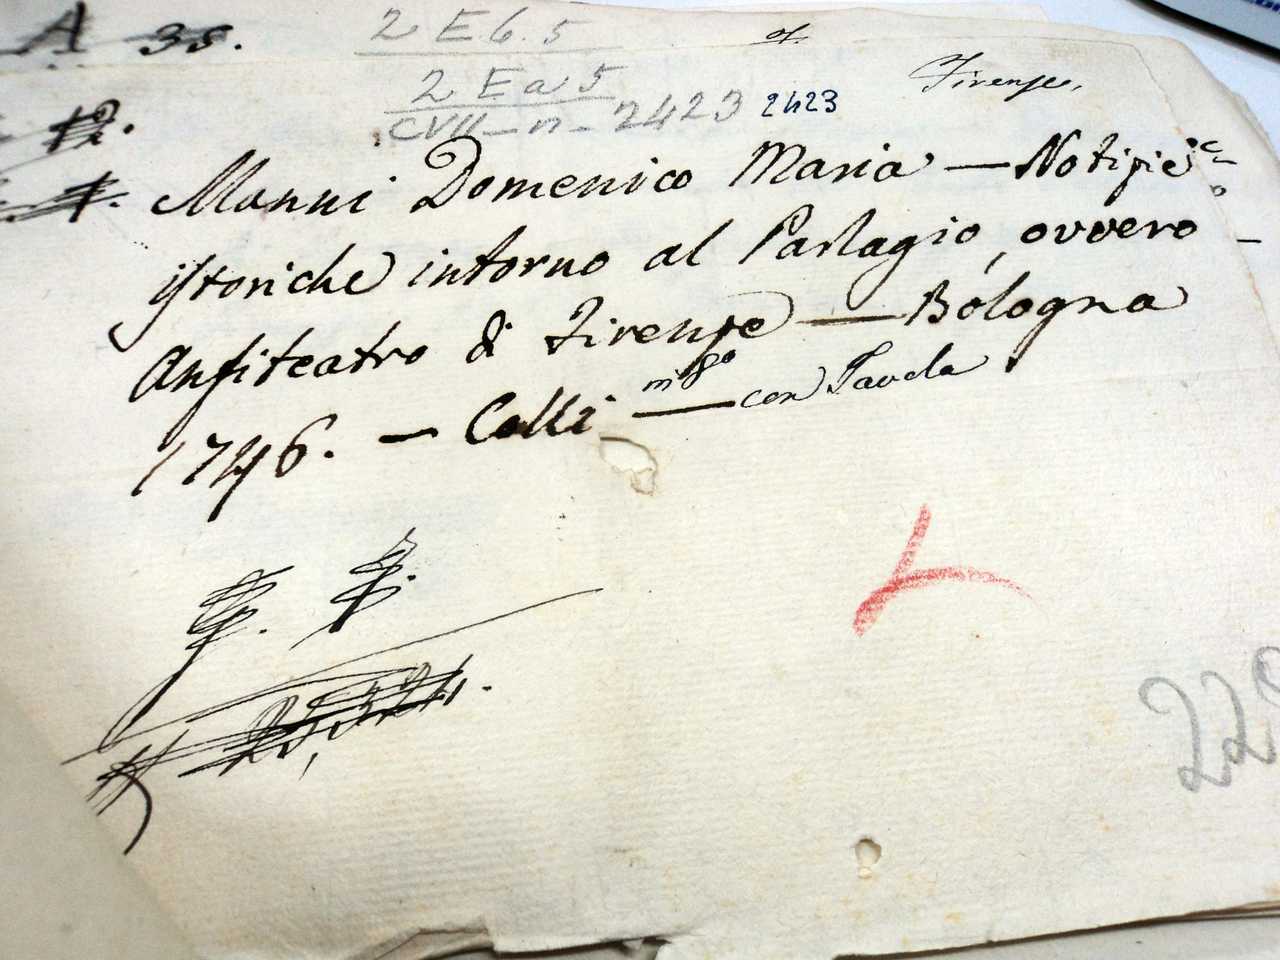 A 35.
2 E 6. 5
2 E a 5
CVII - n - 2423 2423
Firenze,
Manni Domenico Maria — Notizie
istoriche intorno al Parlagio, ovvero
Anfiteatro di Firenze — Bologna
1746. — Colli in 8º — con Tavola
228